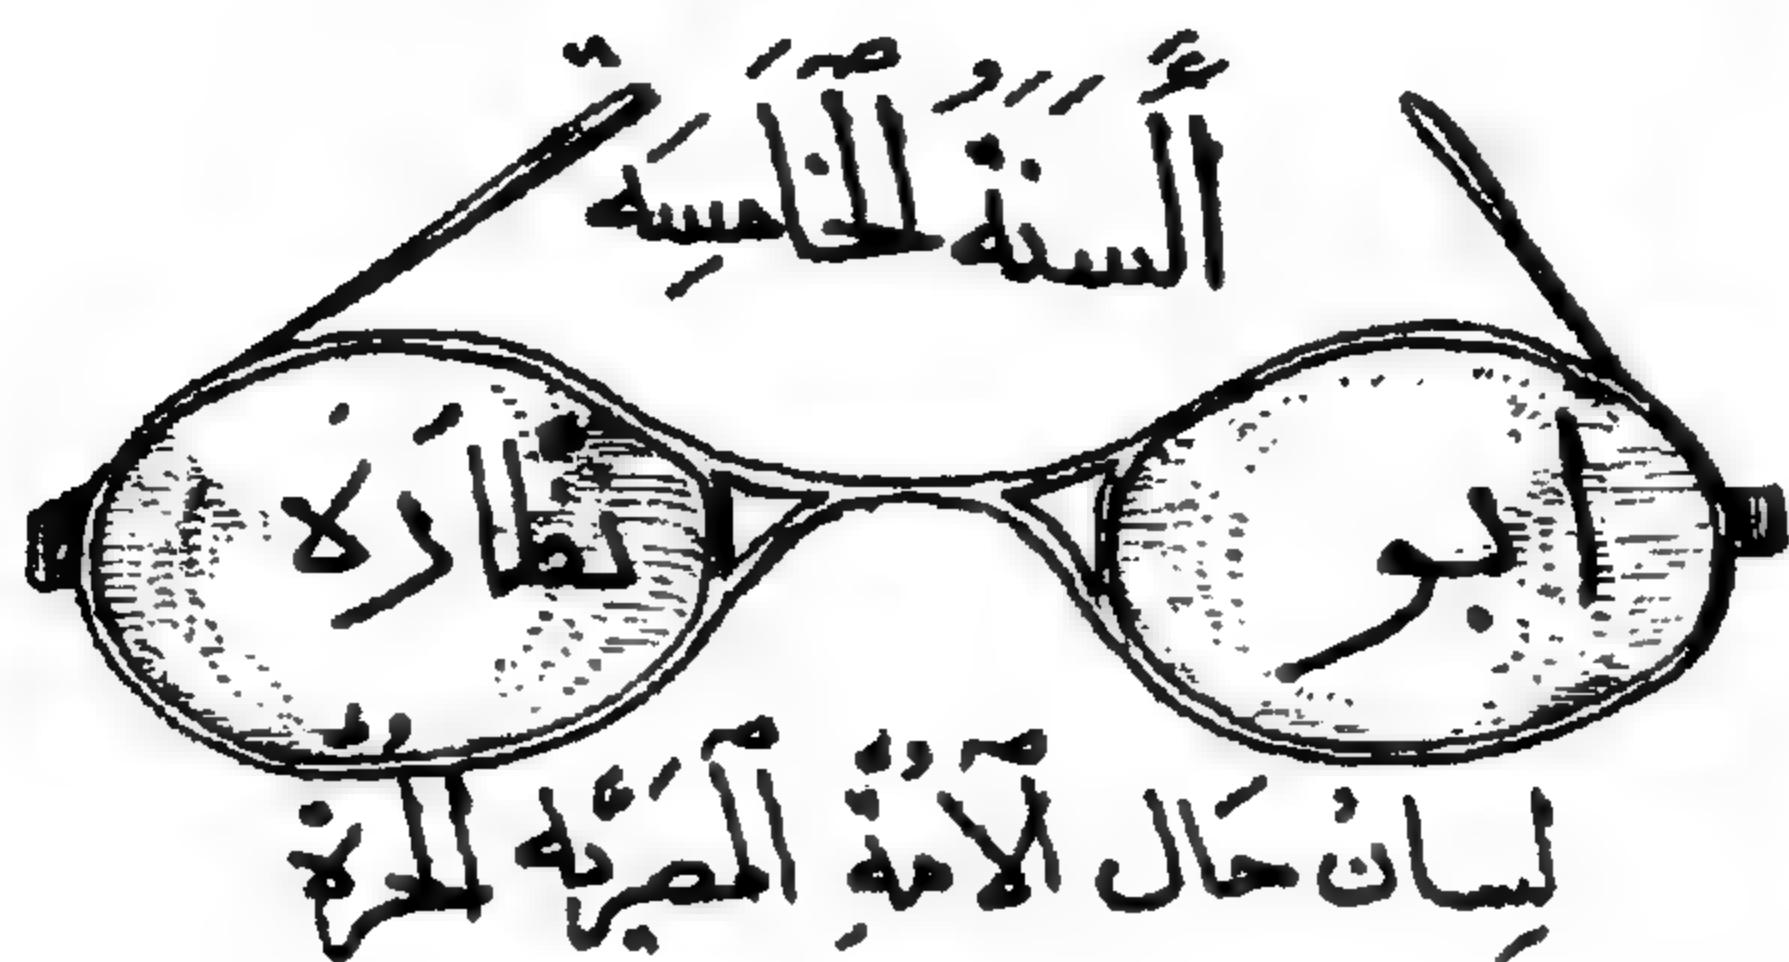 اَلسَّنَةُ الْخَامِسِه
ابو نظَّارَة
لِسانُ حَال الاُمةِ المصريَّه الحرَّة